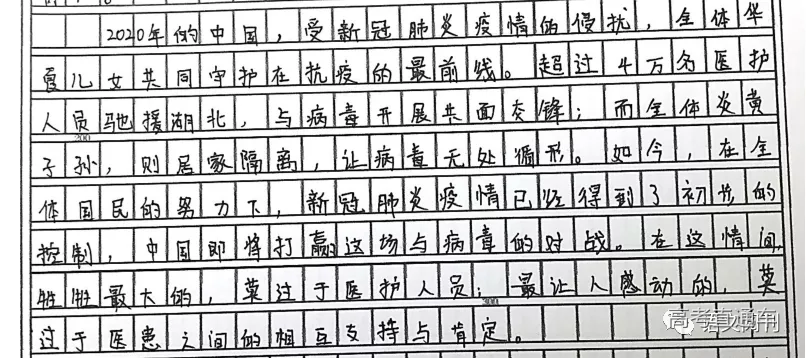 2020年的中国，受新冠肺炎疫情的侵扰，全体华
夏儿女共同守护在抗疫的最前线。超过4万名医护
人员驰援湖北，与病毒开展共面交锋；而全体炎黄
200
子孙，则居家隔离，让病毒无处循形。如今，在全
体国民的努力下，新冠肺炎疫情已经得到了初步的
控制，中国即将打赢这场与病毒的对战。在这情间，
最大的，莫过于医护人员；最让人感动的，莫
300
过于医患之间的相互支持与肯定。
高考直通车